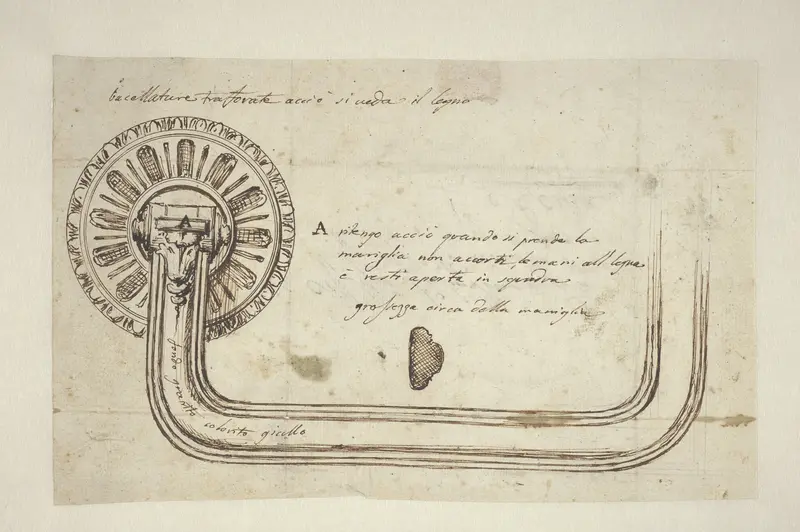 bacellature traforate acciò si ueda il legno
A
A ritengo acciò quando si prende la
maniglia non accosti le mani all legno
è resti aperta in squadra
grossezza circa della maniglia
fondo granito colorito giallo